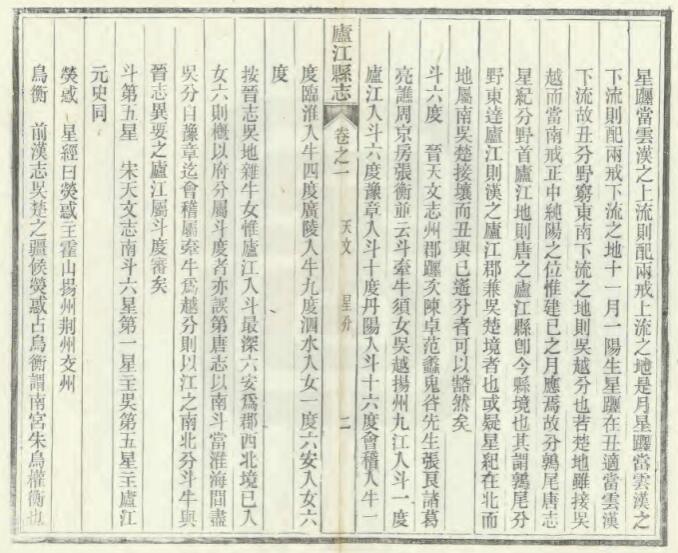 星躔當雲漢之上流則配兩戒上流之地是月星躔當雲漢之
下流則配兩戒下流之地十一月一陽生星躔在丑適當雲漢
下流故丑分野窮東南下流之地則吳越分也若楚地雖接吳
越而當南戒正中純陽之位惟建巳之月應焉故分鶉尾唐志
星紀分野首廬江地則唐之廬江縣卽今縣境也其謂鶉尾分
野東達廬江則漢之廬江郡兼吳楚境者也或疑星紀在北而
地屬南吳楚接壤而丑與巳遙分者可以豁然矣
斗六度　晉天文志州郡躔次陳卓范蠡鬼谷先生張良諸葛
亮譙周京房張衡並云斗牽牛須女吳越揚州九江入斗一度
廬江入斗六度豫章入斗十度丹陽入斗十六度會稽入牛一
廬江縣志
卷之一
天文　星分
二
度臨淮入牛四度廣陵入牛九度泗水入女一度六安入女六
度
按晉志吳地雜牛女惟廬江入斗最深六安爲郡西北境已入
女六則概以府分屬斗度者亦誤第唐志以南斗當淮海間盡
吳分自豫章迄會稽屬牽牛爲越分則以江之南北分斗牛與
晉志異要之廬江屬斗度審矣
斗第五星　宋天文志南斗六星第一星主吳第五星主廬江
元史同
熒惑　星經曰熒惑主霍山揚州荆州交州
鳥衡　前漢志吳楚之疆候熒惑占鳥衡謂南宮朱鳥權衡也